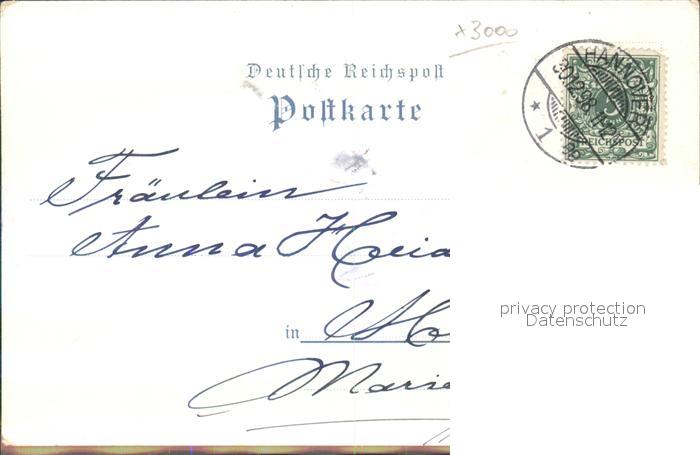 x3000
Deutsche Reichspost
Postkarte
HANNOVER
30.12.98
1
REICHSPOST
Fräulein
Anna
in
privacy protection
Datenschutz